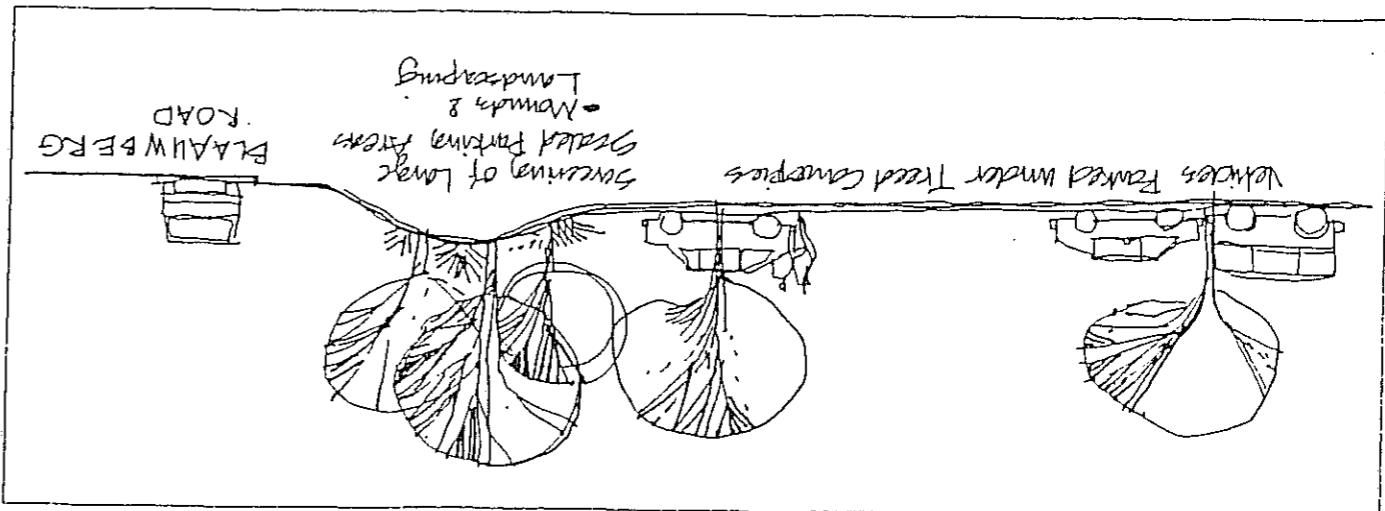 Vehicles Parked under Treed Canopies
Screening of Large
Scaled Parking Areas
- Mounds &
Landscaping
BLAAUWBERG
ROAD